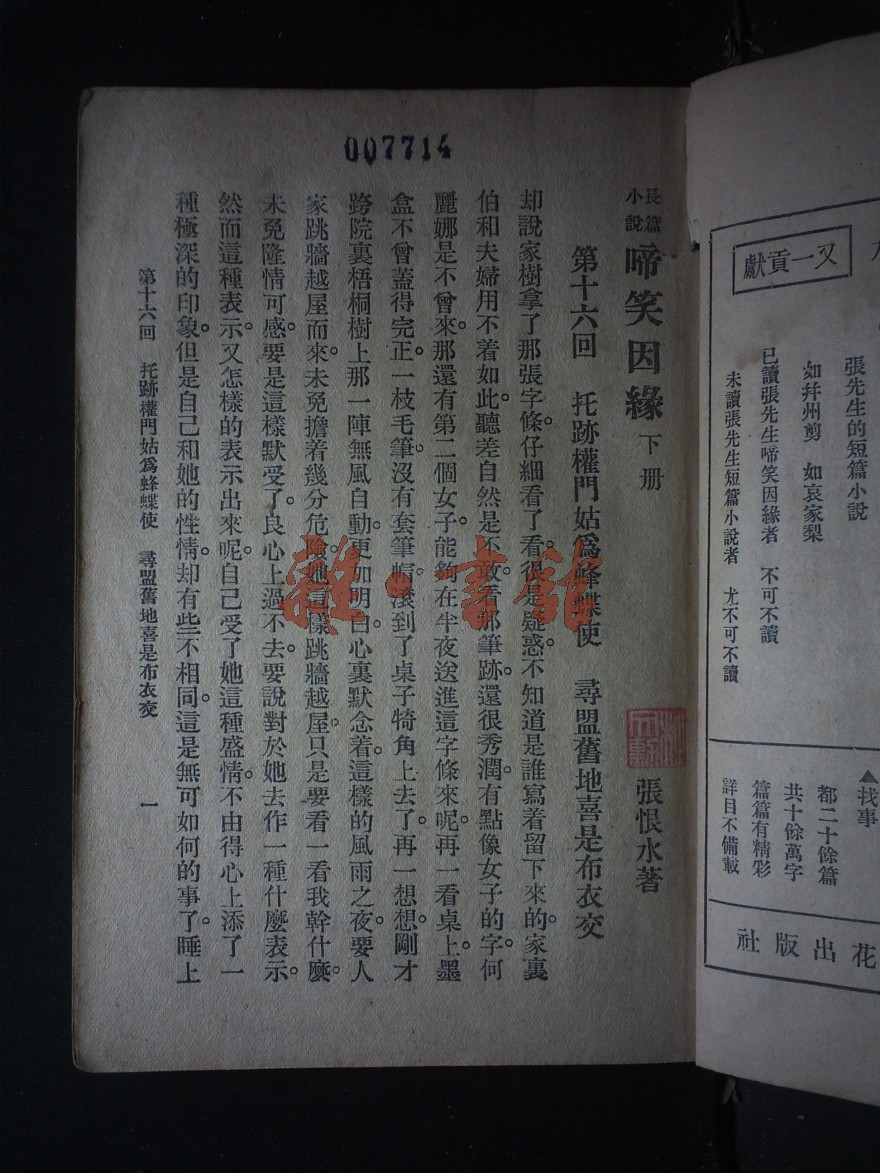 007714
長篇小說 啼笑因緣 下册
張恨水著
第十六回 托跡權門姑爲蜂蝶使 尋盟舊地喜是布衣交
却說家樹拿了那張字條。仔細看了看。很是疑惑。不知道是誰寫着留下來的。家裏
伯和夫婦用不着如此。聽差自然是不敢。看那筆跡。還很秀潤。有點像女子的字。何
麗娜是不曾來。那還有第二個女子。能夠在半夜送進這字條來呢。再一看桌上。墨
盒不曾蓋得完正。一枝毛筆。沒有套筆帽。滾到了桌子犄角上去了。再一想想。剛才
跨院裏梧桐樹上那一陣無風自動。更加明白。心裏默念着。這樣的風雨之夜。要人
家跳牆越屋而來。未免擔着幾分危險。她這樣跳牆越屋。只是要看一看我幹什麼。
未免隆情可感。要是這樣默受了。良心上過不去。要說對於她去作一種什麼表示。
然而這種表示。又怎樣的表示出來呢。自己受了她這種盛情。不由得心上添了一
種極深的印象。但是自己和她的性情。却有些不相同。這是無可如何的事了。睡上
第十六回 托跡權門姑爲蜂蝶使 尋盟舊地喜是布衣交 一
又一貢獻
張先生的短篇小說
如幷州剪 如哀家梨
已讀張先生啼笑因緣者 不可不讀
未讀張先生短篇小說者 尤不可不讀
▲找事
都二十餘篇
共十餘萬字
篇篇有精彩
詳目不備載
花出版社
雜·書館